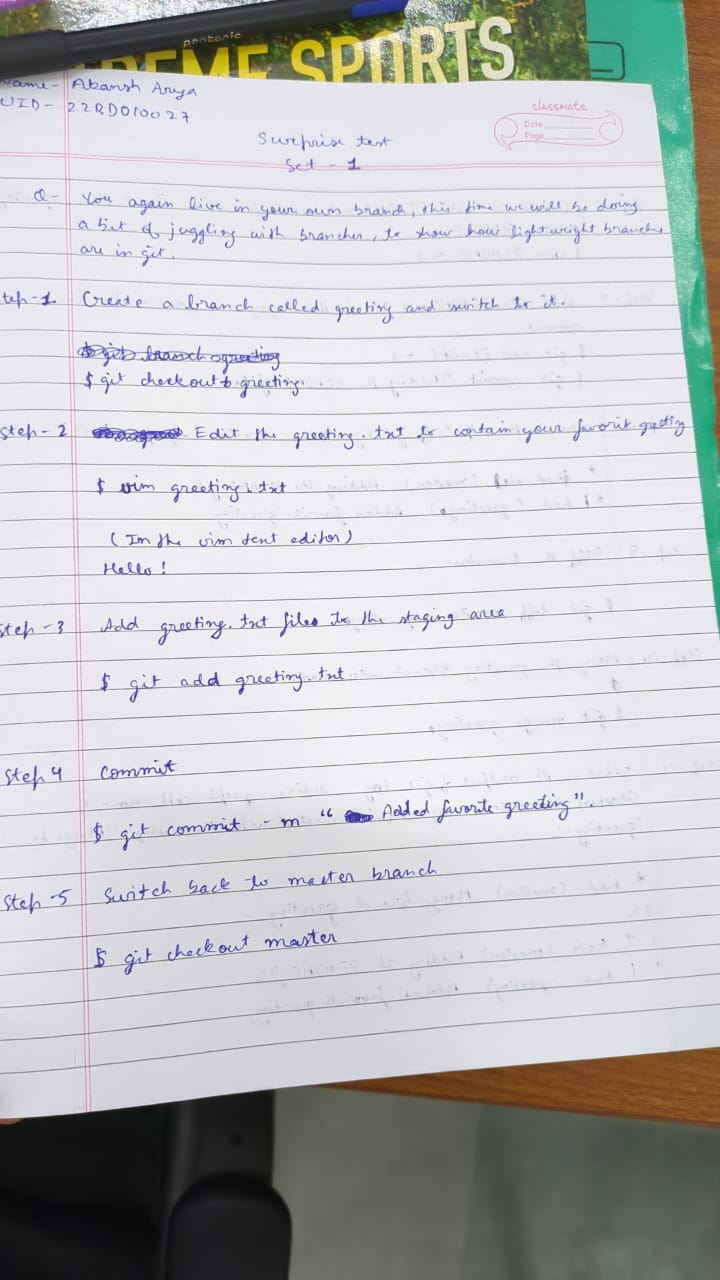 pentonic
EME SPORTS
Name- Akansh Arya
UID- 22BD010027
classmate
Date
Page
Surprise test
Set - 1
Q- You again live in your own branch, this time we will be doing
a bit of juggling with branches, to show how lightweight branches
are in git.
tep-1 Create a branch called greeting and switch to it.
$ git branch greeting
$ git checkout b greeting.
Step-2 Edit the greeting.txt to contain your favorit greeting
$ vim greeting.txt
(In the vim text editor)
Hello!
Step-3 Add greeting.txt files to the staging area
$ git add greeting.txt
Step 4 Commit
$ git commit -m " Added favorite greeting".
Step-5 Switch back to master branch
$ git checkout master